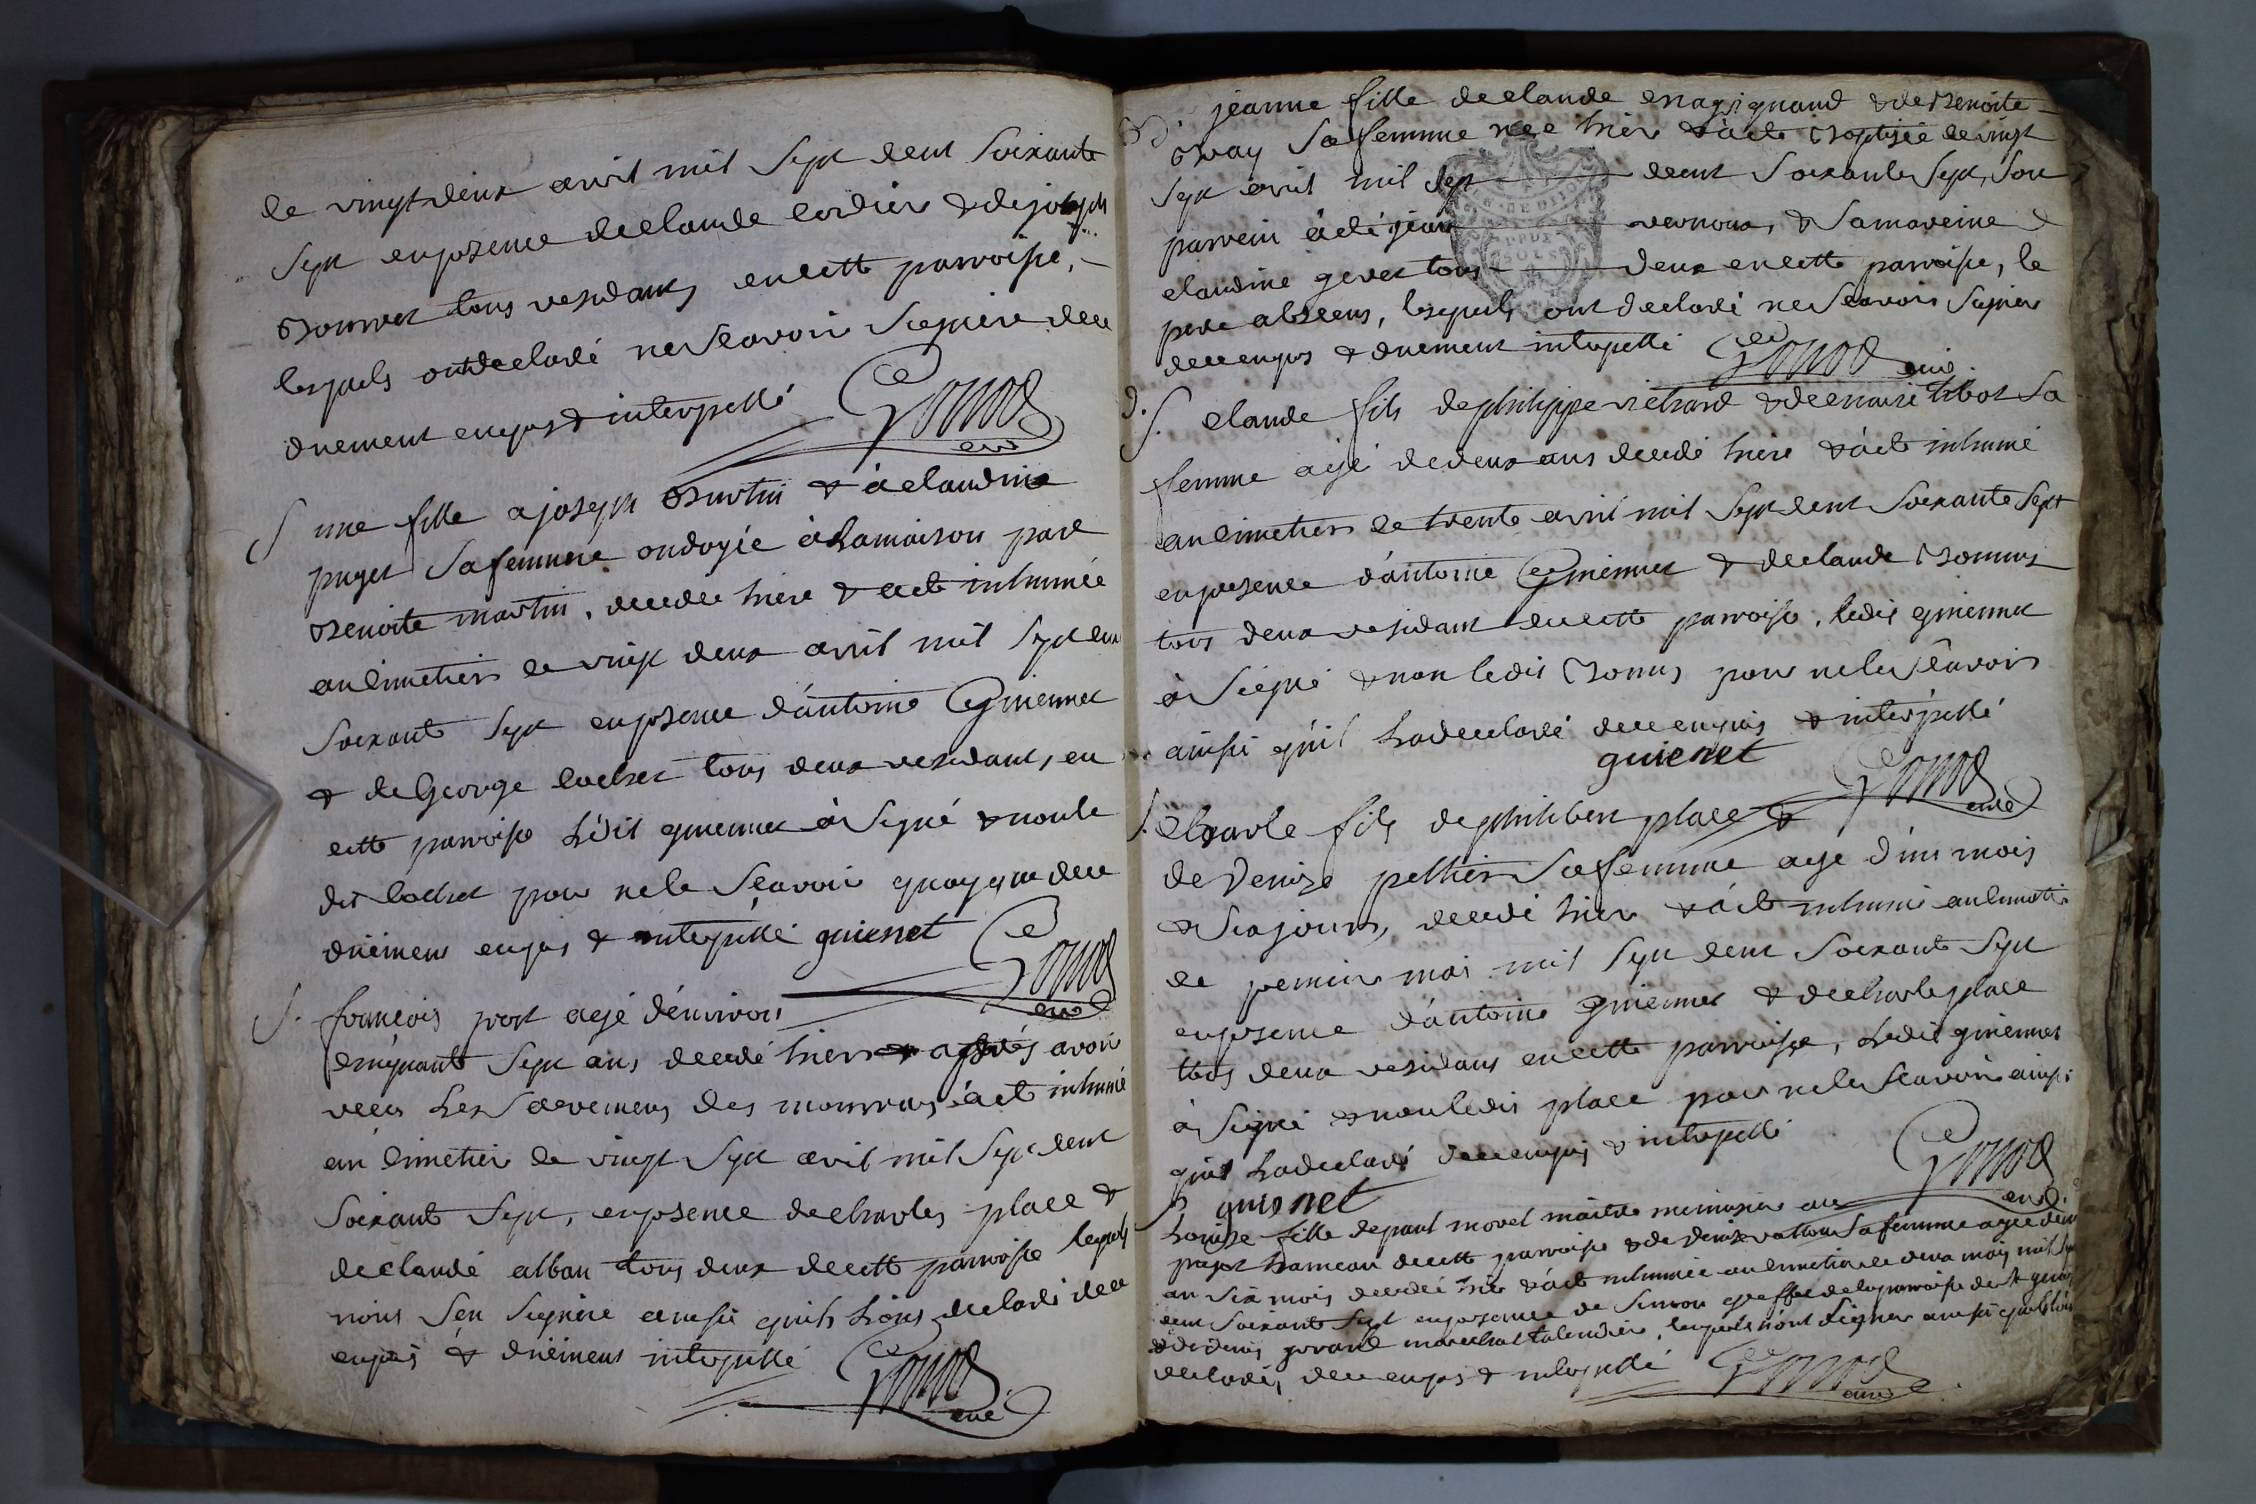 le vingt deux avril mil sept cent soixante
sept en presence de claude cordier & de joseph
bouvret tous residants en cette parroisse,
lesquels ont declaré ne scavoir signer de ce
duement enquis & interpellé Gonod curé
S une fille a joseph burtin & à claudine
puget sa femme ondoyée à la maison par
benoite martin, decedée hier & a eté inhumée
au cimetier le vingt deux avril mil sept cent
soixante sept en presence d'antoine Guiennet
& de George lochet tous deux residants, en
cette parroise ledit guiennet à signé & non le
dit lochet pour ne le scavoir quoyque de ce
duëment enquis & interpellé guienet Gonod
curé
S. françois prost agé d'environ
cinquante sept ans decedé hier & après avoir
recu les sacremens des mourrans à eté inhumé
au cimetier le vingt sept avril mil sept cent
soixante sept, en presence de charles place &
de claude alban tous deux de cette parroisse lesquels
n'ont sçu signer ainsi qu'ils l'ons declaré de ce
enquis & duëment interpellé Gonod
curé
B. jeanne fille de claude & de benoite
bray sa femme née hier & à eté baptisée le vingt
sept avril mil sept cent soixante sept, son
parrein à eté jean vernoux, & sa mareine
claudine gevet tous deux en cette parroisse, le
pere absens, lesquels ont declaré ne scavoir signer
de ce enquis & duement interpellé Gonod curé
S. claude fils de philippe richard & de marie tibot sa
femme agé de deux ans decedé hier & à eté inhumé
au cimetier le trente avril mil sept cent soixante sept
en presence d'antoine Guiennet & de claude bonnus
tous deux residant en cette parroisse, ledit guiennet
à signé & non ledit bonnus pour ne le scavoir
ainsi qu'il l'a declaré de ce enquis & interpellé
guienet Gonod
curé
S. charle fils de philibert place &
de Denize pelltier sa femme agé d'un mois
& six jours, decedé hier & à eté inhumé au cimetier
le premier mai mil sept cent soixante sept
en presence d'antoine guiennet & de charle place
tous deux residans en cette parroisse, ledit guiennet
à signé & non ledit place pour ne le scavoir ainsi
qu'il l'a declaré de ce enquis & interpellé
guienet Gonod
curé
S Louise fille de paul morel maitre menuisier au
hameau de cette parroisse & de Denise sa femme agée d'un
an six mois decedée hier & à eté inhumée au cimetier le deux may mil sept
cent soixante sept en presence de simon greffe de la parroisse de st
& de denis marechal, lesquels n'ont signer ainsi qu'ils l'ont
declarés, de ce enquis & interpellé Gonod
curé